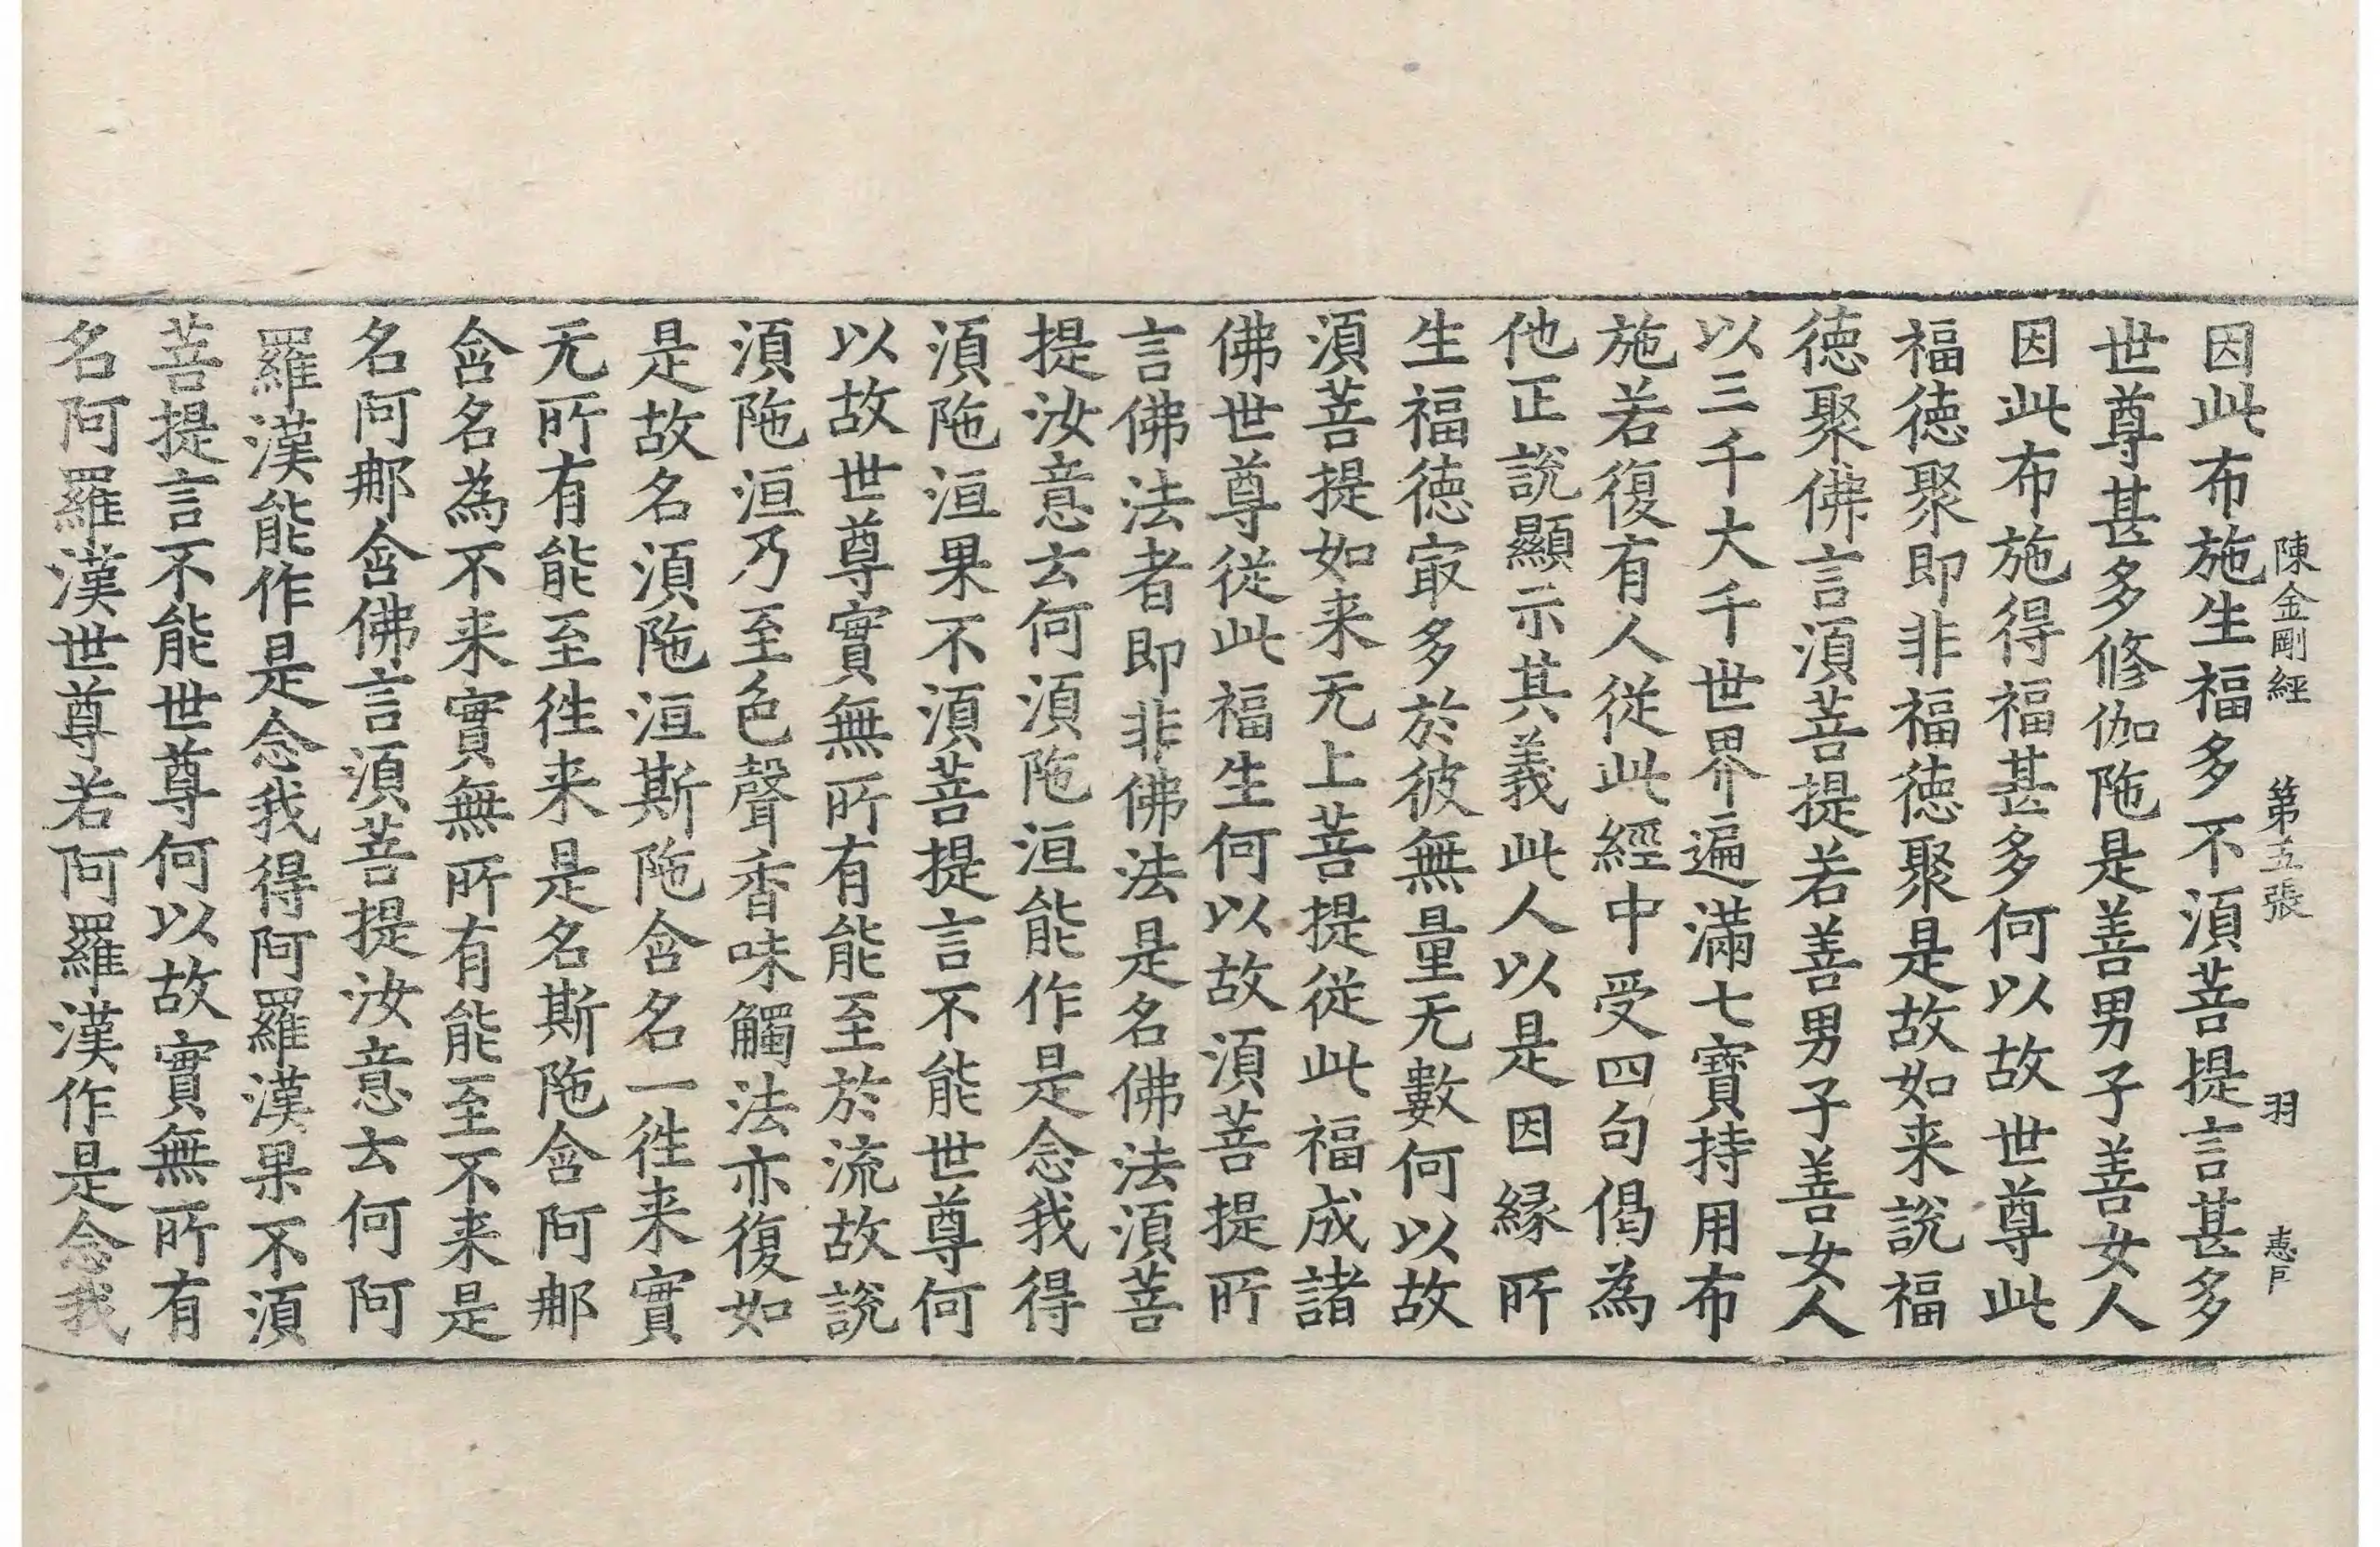 陳金剛經　第五張　羽　惠戶
因此布施生福多不湏菩提言甚多
世尊甚多修伽陁是善男子善女人
因此布施得福甚多何以故世尊此
福徳聚即非福徳聚是故如来說福
徳聚佛言湏菩提若善男子善女人
以三千大千世界遍滿七寶持用布
施若復有人従此經中受四句偈為
他正說顯示其義此人以是因縁所
生福徳㝡多於彼無量无數何以故
湏菩提如来无上菩提従此福成諸
佛世尊従此福生何以故湏菩提所
言佛法者即非佛法是名佛法湏菩
提汝意云何湏陁洹能作是念我得
湏陁洹果不湏菩提言不能世尊何
以故世尊實無所有能至於流故說
湏陁洹乃至色聲香味觸法亦復如
是故名湏陁洹斯陁含名一徃来實
无所有能至徃来是名斯陁含阿那
含名為不来實無所有能至不来是
名阿那含佛言湏菩提汝意云何阿
羅漢能作是念我得阿羅漢果不湏
菩提言不能世尊何以故實無所有
名阿羅漢世尊若阿羅漢作是念我